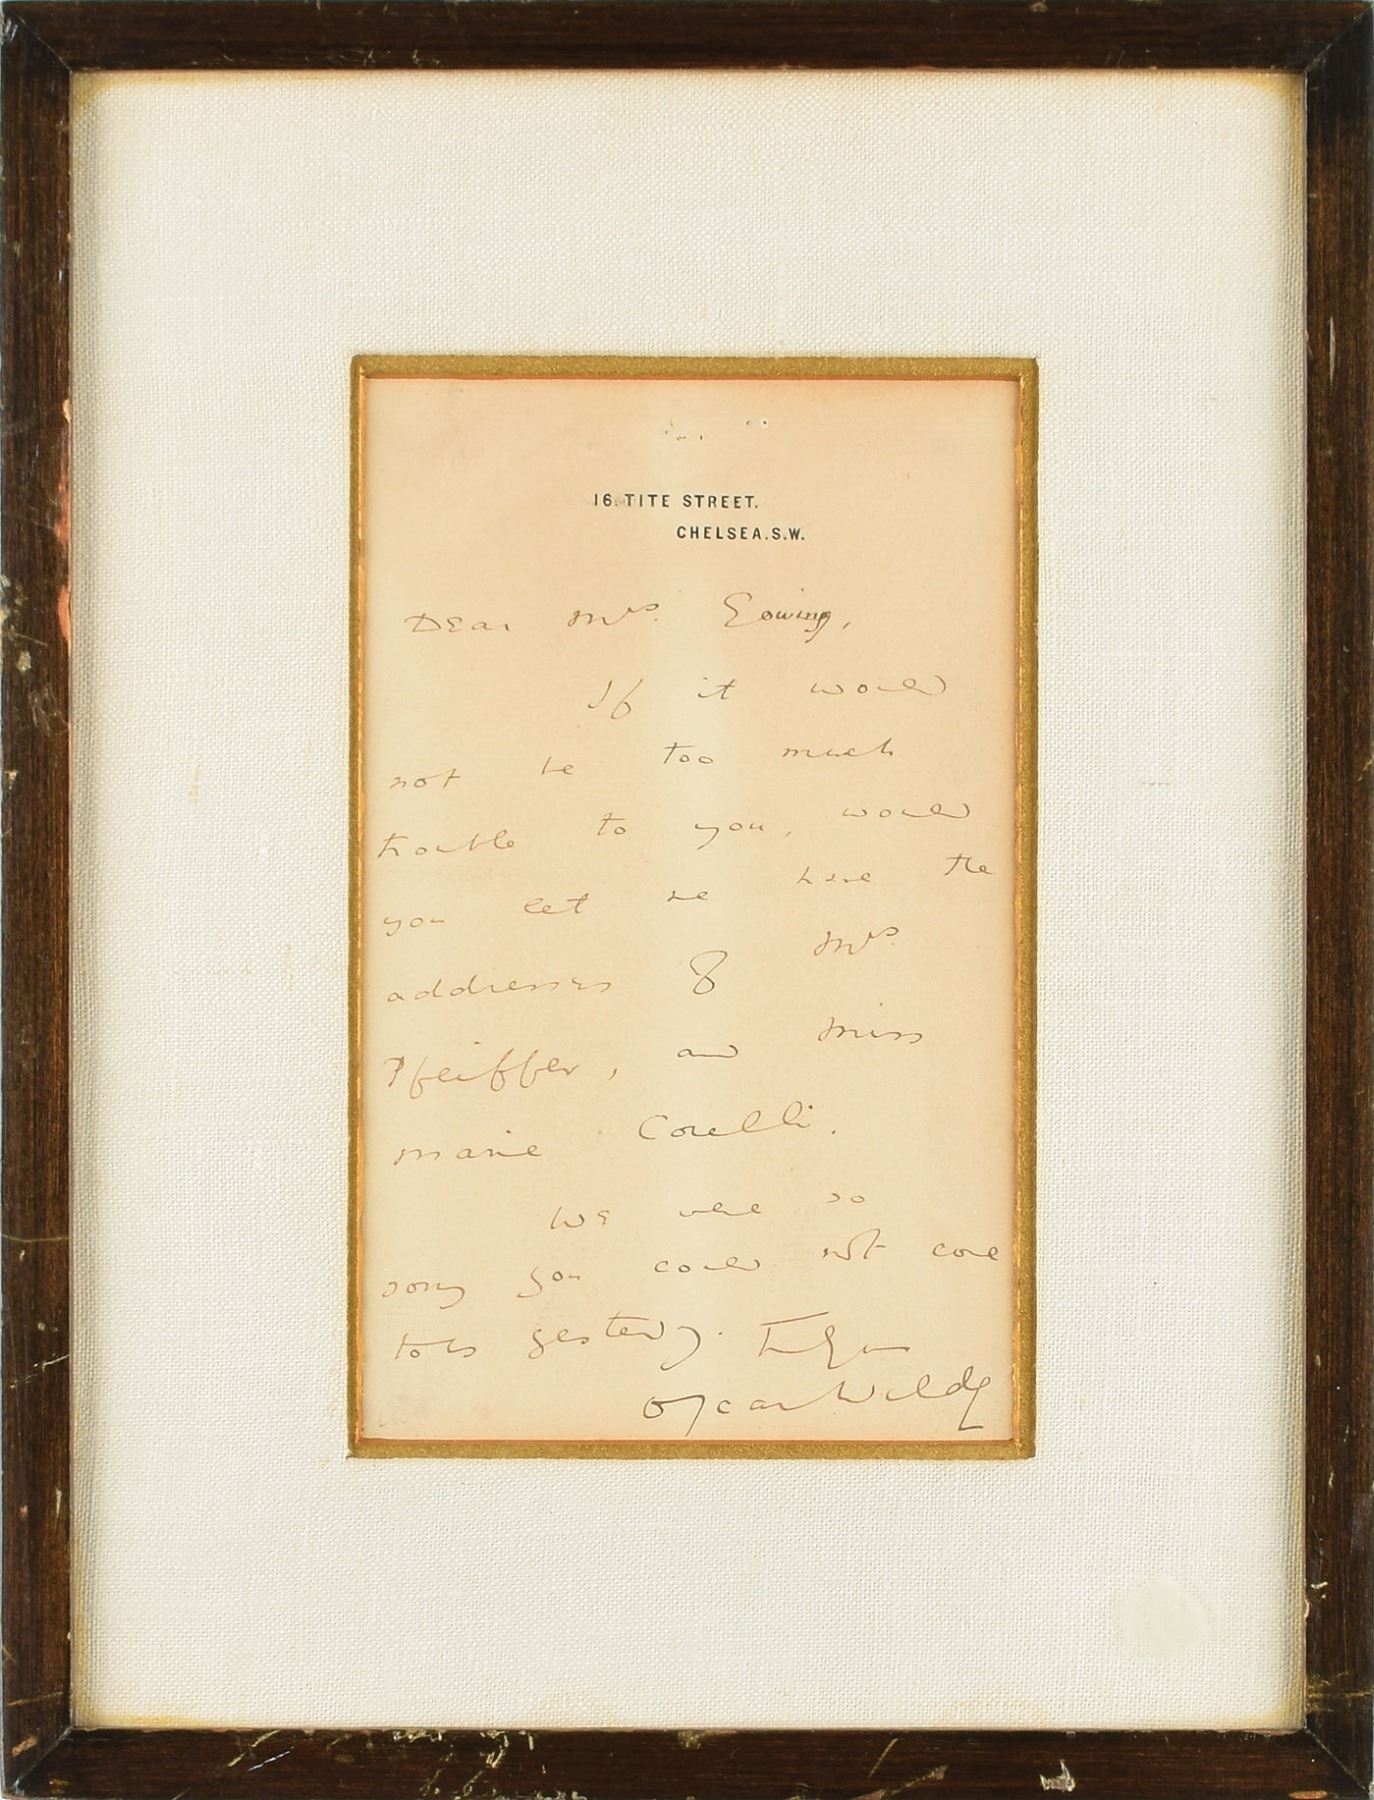 16. TITE STREET.
CHELSEA. S.W.
Dear Mrs. Gowing,
If it would
not be too much
trouble to you, would
you let me have the
addresses of Mrs.
Pfeiffer, and Miss
Marie Corelli.
We were so
sorry you could not come
to us yesterday.
Oscar Wilde